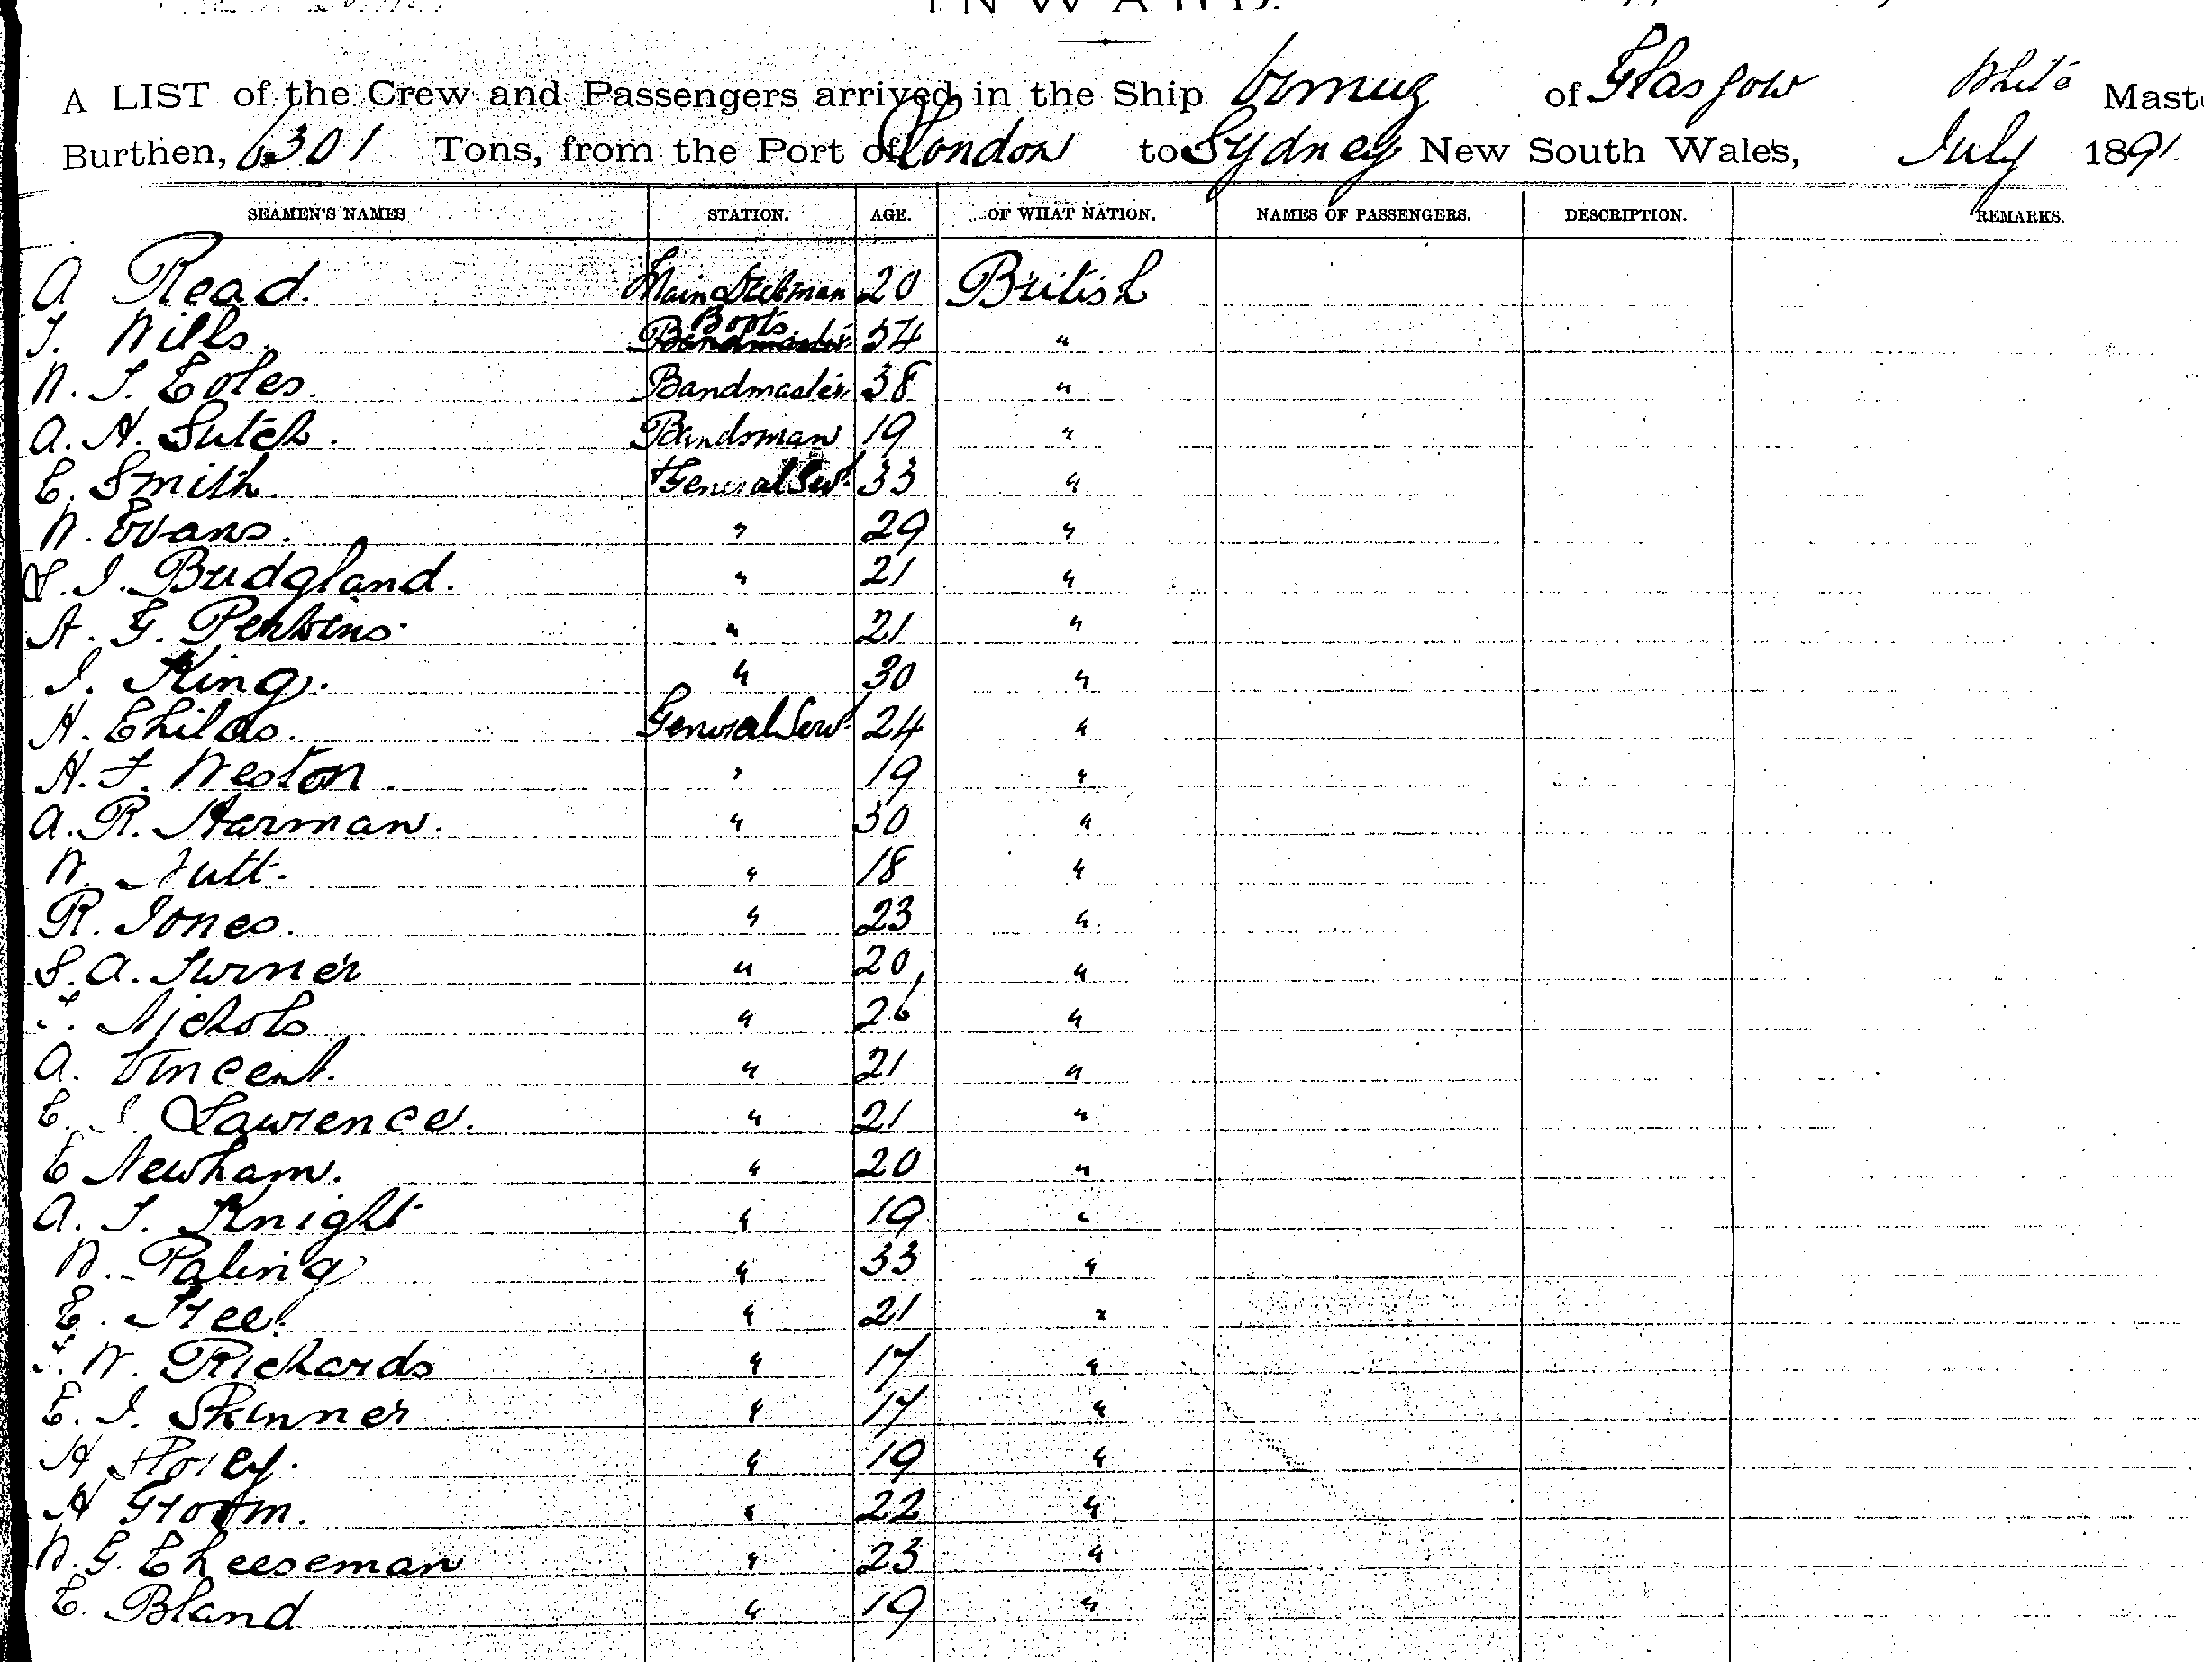 INWARD.
A LIST of the Crew and Passengers arrived in the Ship Ormuz of Glasgow White Mast
Burthen, 6301 Tons, from the Port of London to Sydney New South Wales, July 1891.
SEAMEN'S NAMES STATION. AGE. OF WHAT NATION. NAMES OF PASSENGERS. DESCRIPTION. REMARKS.
A Read. 20 British
T. Wills. Boots 54 "
W. T. Coles. Bandmaster 38 "
A. H. Sutch. Bandsman 19 "
E. Smith. General Serv. 33 "
W. Evans. " 29 "
Bridgland. " 21 "
H. G. Perkins. " 21 "
J. King. " 30 "
H. Childs. General Serv. 24 "
H. F. Weston. " 19 "
A. R. Harman. " 30 "
W. Nutt. " 18 "
R. Jones. " 23 "
S. A. Turner " 20 "
Nichols " 26 "
A. Vincent. " 21 "
E. J. Lawrence. " 21 "
E Newham. " 20 "
A. T. Knight " 19 "
W. Paling " 33 "
E. " 21 "
W. Richards " 17 "
E. J. Skinner " 17 "
H " 19 "
H Groom. " 22 "
W. G. Cheeseman " 23 "
E. Bland " 19 "